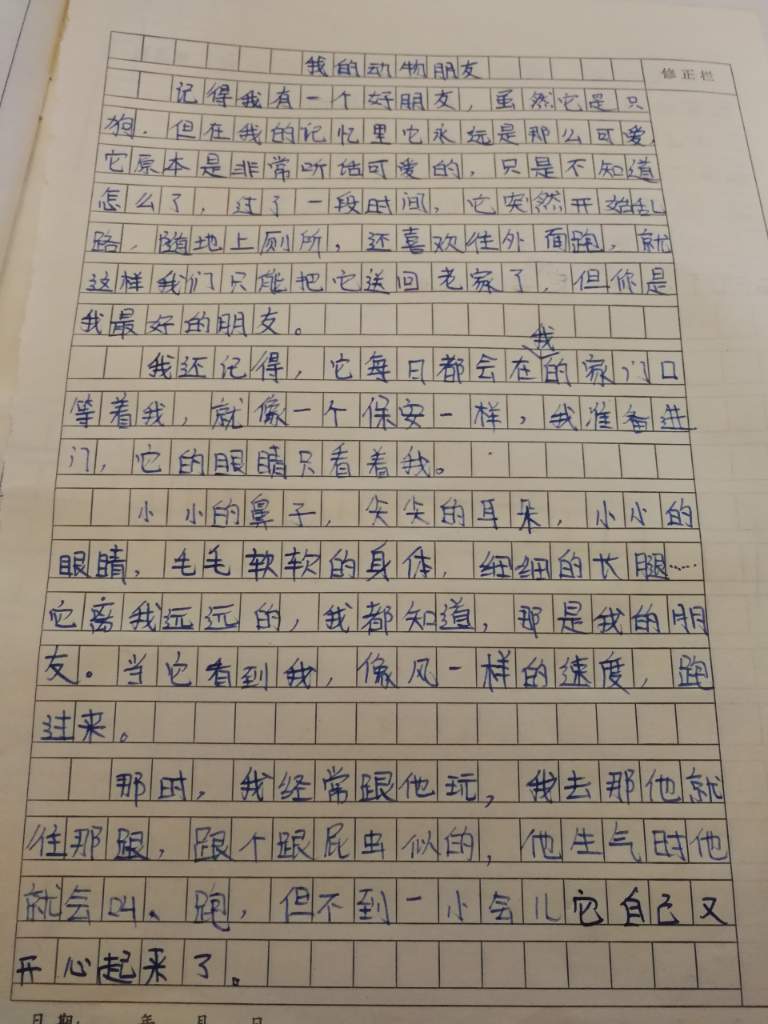 我的动物朋友
修正栏
记得我有一个好朋友，虽然它是只
狗．但在我的记忆里它永远是那么可爱，
它原本是非常听话可爱的，只是不知道
怎么了，过了一段时间，它突然开始乱
路，随地上厕所，还喜欢往外面跑，就
这样我们只能把它送回老家了，但你是
我最好的朋友。
我还记得，它每日都会在我的家门口
等着我，就像一个保安一样，我准备进
门，它的眼睛只看着我。
小小的鼻子，尖尖的耳朵，小小的
眼睛，毛毛软软的身体，细细的长腿……
它离我远远的，我都知道，那是我的朋
友。当它看到我，像风一样的速度，跑
过来。
那时，我经常跟他玩，我去那他就
往那跟，跟个跟屁虫似的，他生气时他
就会叫、跑，但不到一小会儿它自己又
开心起来了。
日期： 年 月 日